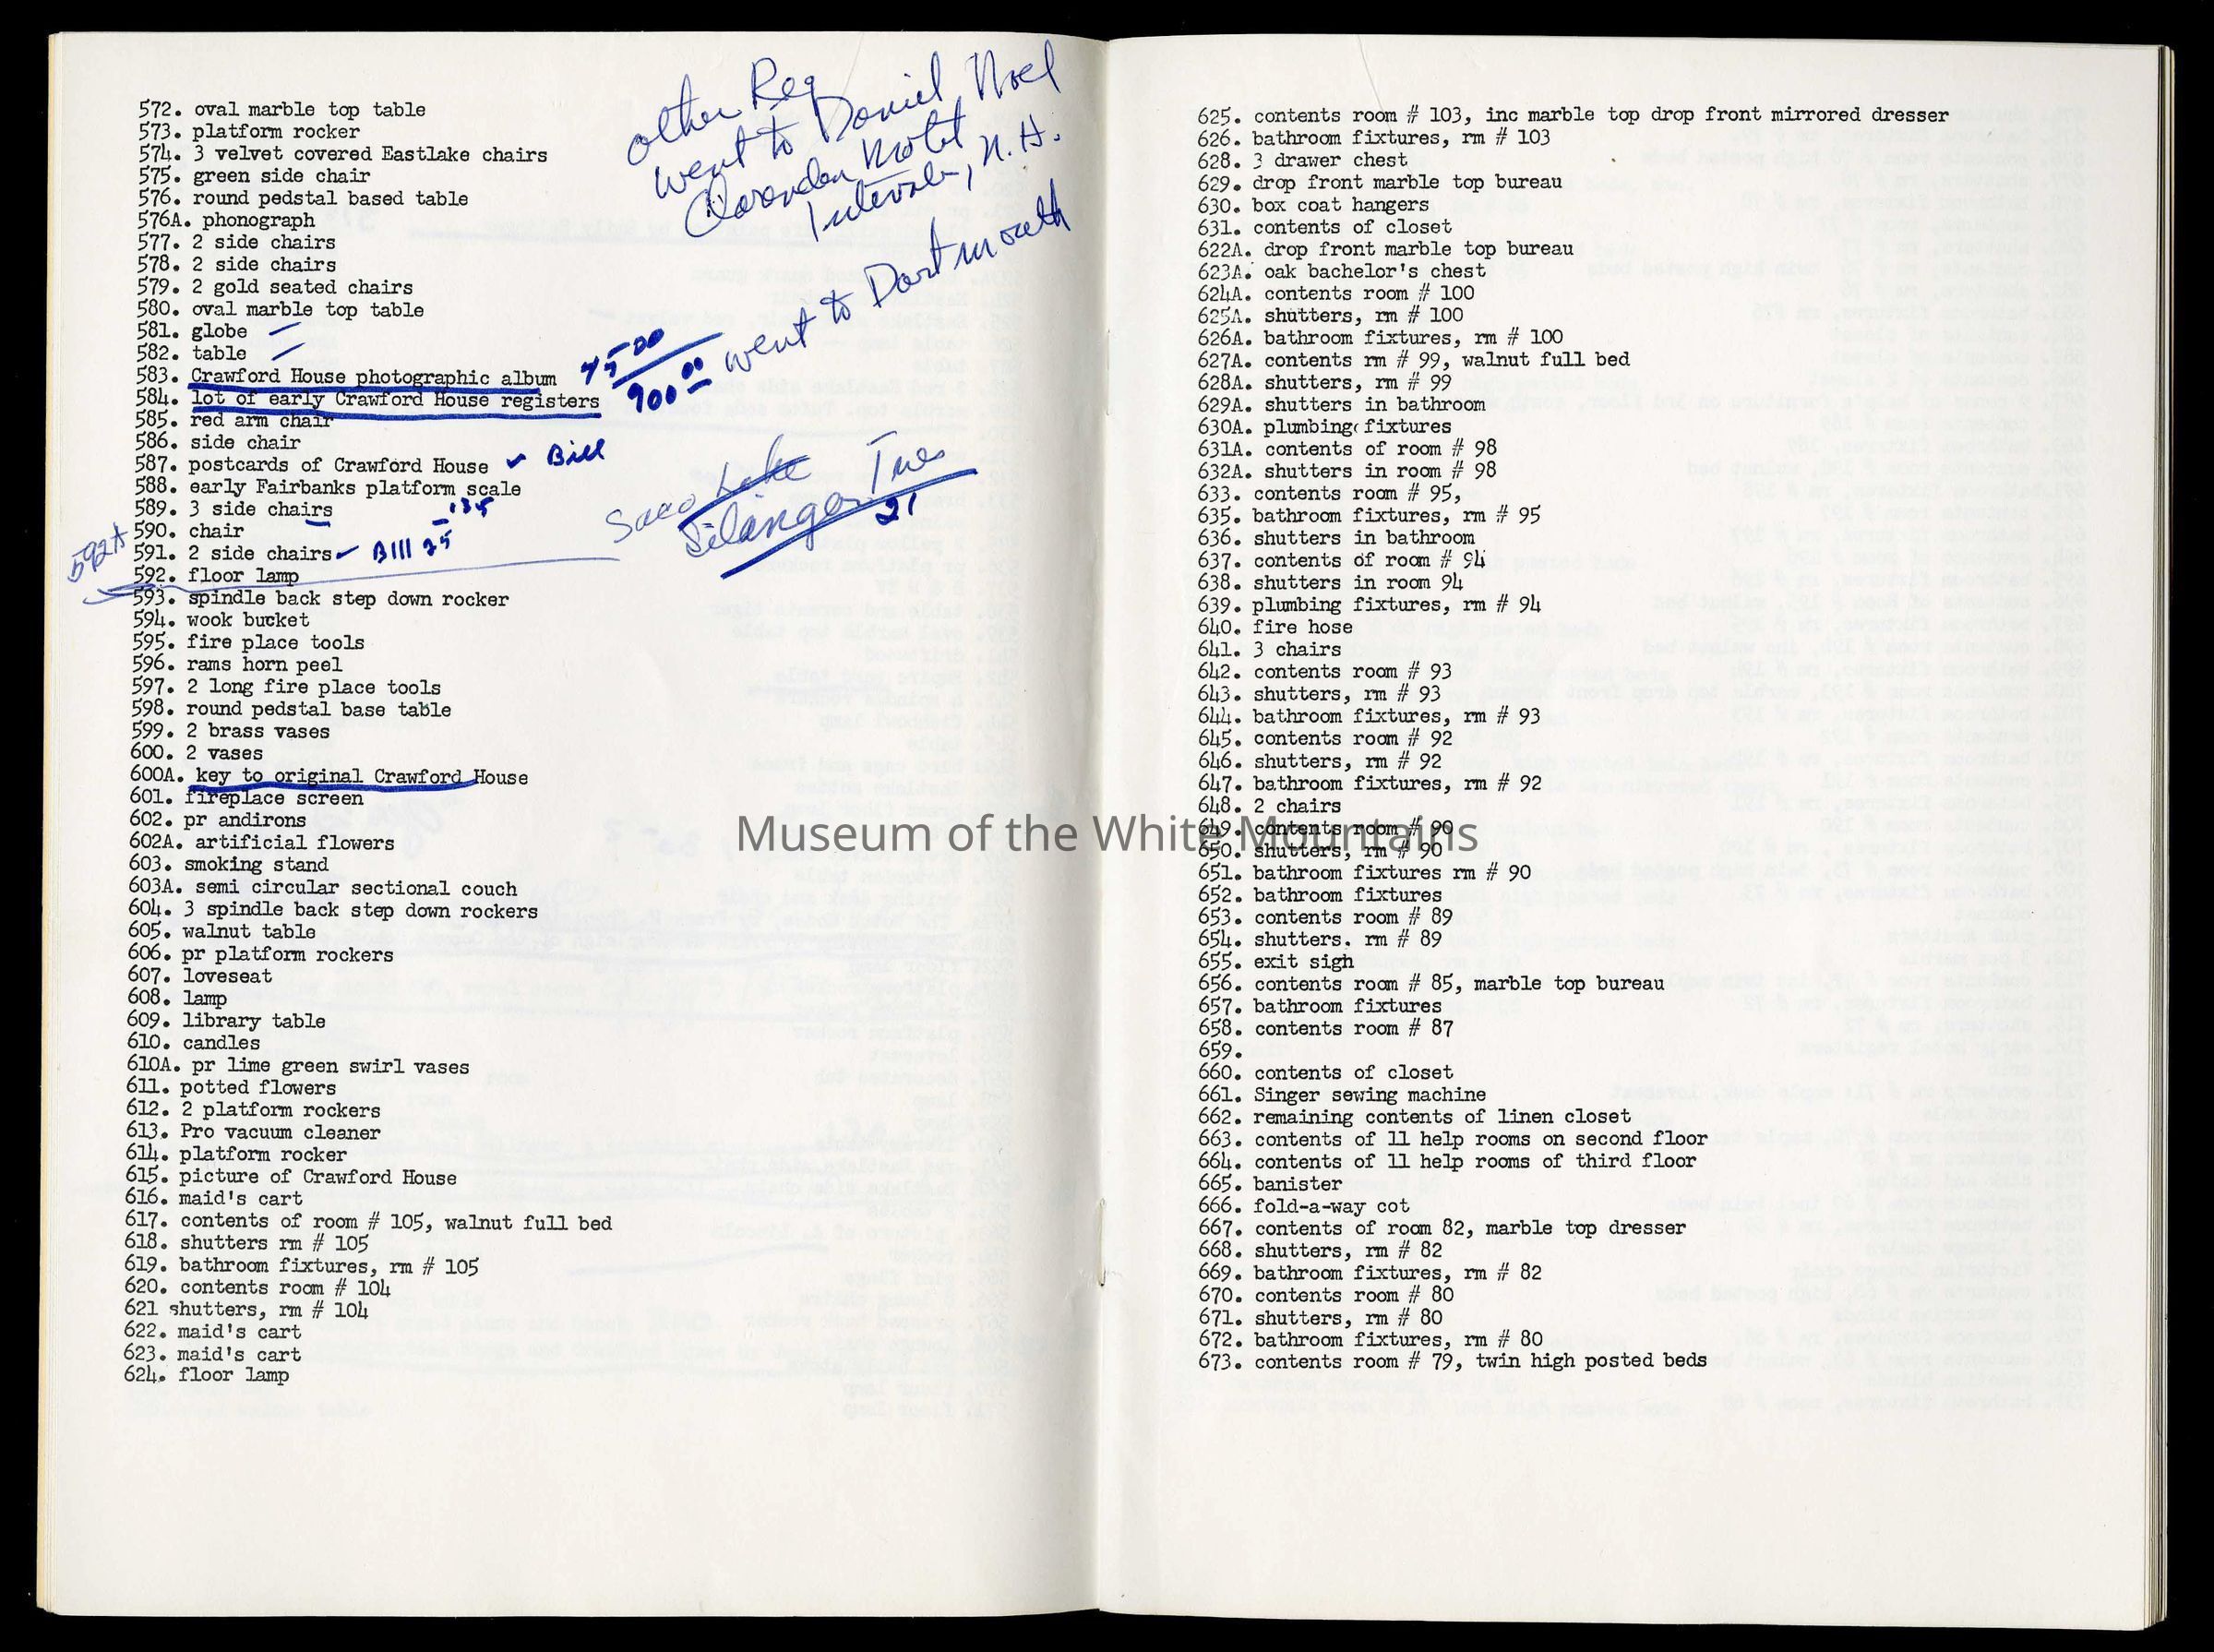 other Reg
went to Daniel Noel
Clarendon Motel
Intervale, N.H.
572. oval marble top table
573. platform rocker
574. 3 velvet covered Eastlake chairs
575. green side chair
576. round pedstal based table
576A. phonograph
577. 2 side chairs
578. 2 side chairs
579. 2 gold seated chairs
580. oval marble top table
581. globe
582. table
583. Crawford House photographic album 75 00
584. lot of early Crawford House registers 900 00 went to Dartmouth
585. red arm chair
586. side chair
587. postcards of Crawford House ✓ Bill
588. early Fairbanks platform scale
589. 3 side chairs
590. chair
591. 2 side chairs ✓ Bill 25
592A
592. floor lamp
Saco Lake
21
593. spindle back step down rocker
594. wook bucket
595. fire place tools
596. rams horn peel
597. 2 long fire place tools
598. round pedstal base table
599. 2 brass vases
600. 2 vases
600A. key to original Crawford House
601. fireplace screen
602. pr andirons
602A. artificial flowers
603. smoking stand
603A. semi circular sectional couch
604. 3 spindle back step down rockers
605. walnut table
606. pr platform rockers
607. loveseat
608. lamp
609. library table
610. candles
610A. pr lime green swirl vases
611. potted flowers
612. 2 platform rockers
613. Pro vacuum cleaner
614. platform rocker
615. picture of Crawford House
616. maid's cart
617. contents of room # 105, walnut full bed
618. shutters rm # 105
619. bathroom fixtures, rm # 105
620. contents room # 104
621 shutters, rm # 104
622. maid's cart
623. maid's cart
624. floor lamp
625. contents room # 103, inc marble top drop front mirrored dresser
626. bathroom fixtures, rm # 103
628. 3 drawer chest
629. drop front marble top bureau
630. box coat hangers
631. contents of closet
622A. drop front marble top bureau
623A. oak bachelor's chest
624A. contents room # 100
625A. shutters, rm # 100
626A. bathroom fixtures, rm # 100
627A. contents rm # 99, walnut full bed
628A. shutters, rm # 99
629A. shutters in bathroom
630A. plumbing fixtures
631A. contents of room # 98
632A. shutters in room # 98
633. contents room # 95,
635. bathroom fixtures, rm # 95
636. shutters in bathroom
637. contents of room # 94
638. shutters in room 94
639. plumbing fixtures, rm # 94
640. fire hose
641. 3 chairs
642. contents room # 93
643. shutters, rm # 93
644. bathroom fixtures, rm # 93
645. contents room # 92
646. shutters, rm # 92
647. bathroom fixtures, rm # 92
648. 2 chairs
649. contents room # 90
650. shutters, rm # 90
651. bathroom fixtures rm # 90
652. bathroom fixtures
653. contents room # 89
654. shutters. rm # 89
655. exit sigh
656. contents room # 85, marble top bureau
657. bathroom fixtures
658. contents room # 87
659.
660. contents of closet
661. Singer sewing machine
662. remaining contents of linen closet
663. contents of 11 help rooms on second floor
664. contents of 11 help rooms of third floor
665. banister
666. fold-a-way cot
667. contents of room 82, marble top dresser
668. shutters, rm # 82
669. bathroom fixtures, rm # 82
670. contents room # 80
671. shutters, rm # 80
672. bathroom fixtures, rm # 80
673. contents room # 79, twin high posted beds
Museum of the White Mountains